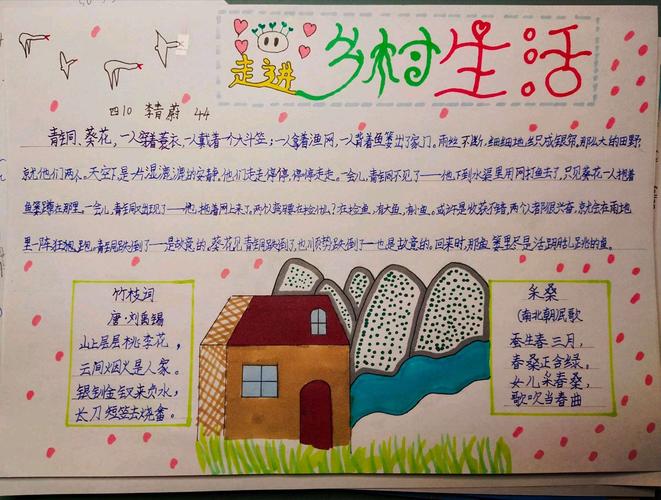 走进乡村生活
四10 李青蔚 44
青铜、葵花,一人穿着蓑衣,一人戴着一个大斗笠;一人拿着渔网,一人背着鱼篓出了家门。雨丝不断,细细地丝织成银帘,那么大的田野,
就他们两个人。天空下是一片湿漉漉的安静,他们走走停停,停停走走。一会儿,青铜不见了——他下到水渠里用网打鱼去了,只见葵花一人抱着
鱼篓蹲在那里。一会儿,青铜又出现了——他拖着网上来了。两个人弯腰在捡什么?在捡鱼,有大鱼,有小鱼。或许是收获不错,两个人都很兴奋,就会在雨地
里一阵狂跑。青铜跌倒了——是故意的,葵花见青铜跌倒了,也顺势跌倒了——也是故意的。回来时,那鱼篓里尽是活蹦乱跳的鱼。
竹枝词
唐·刘禹锡
山上层层桃李花,
云间烟火是人家。
银钏金钗来负水,
长刀短笠去烧畲。
采桑
(南北朝)民歌
蚕生春三月,
春桑正含绿,
女儿采春桑,
歌吹当春曲